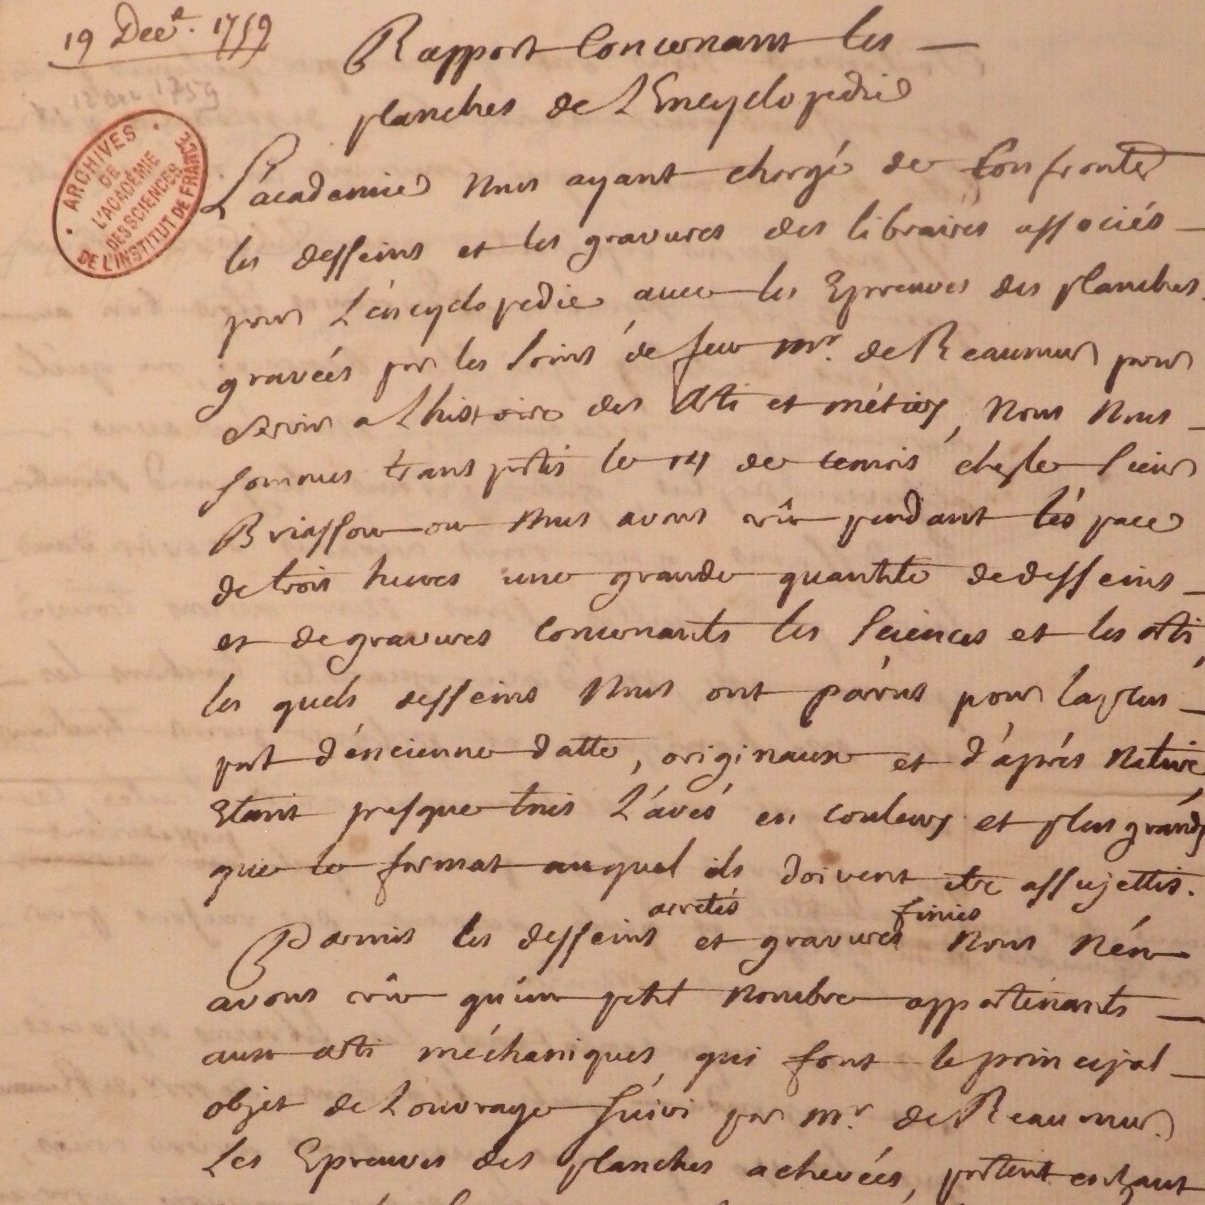 19 Dec.e 1759
Rapport Concernant les
planches de L'Encyclopedie
12 Dec. 1759
ARCHIVES
DE
L'ACADÉMIE
DES SCIENCES
DE L'INSTITUT DE FRANCE
L'academie Nous ayant chargé de Confronter
les desseins et les gravures des libraires associés
pour L'éncyclopedie avec les Epreuves des planches
gravéés par les soins de feu mr. de Reaumur pour
servir a L'histoire des Arts et métiers, Nous Nous
sommes transportés le 14 de cemois chez le sieur
Briasson ou Nous avons vû pendant l'éspace
de trois heures une grande quantité de desseins
et de gravures Concernants les sciences et les arts,
les quels desseins Nous ont párus pour la plus
part d'éncienne datte, originaux et d'áprés Nature
Etant presque tous L'avés en couleurs et plus grands
que le format auquel ils doivent etre assujettis.
arretés finies
Parmis les desseins et gravures Nous N'én
avons vû qu'ún petit Nombre appartenants
aux arts méchaniques, qui font le principal
objet de L'ouvrage suivi par mr. de Reaumur.
Les Epreuves des planches achevéés, portent enhaut